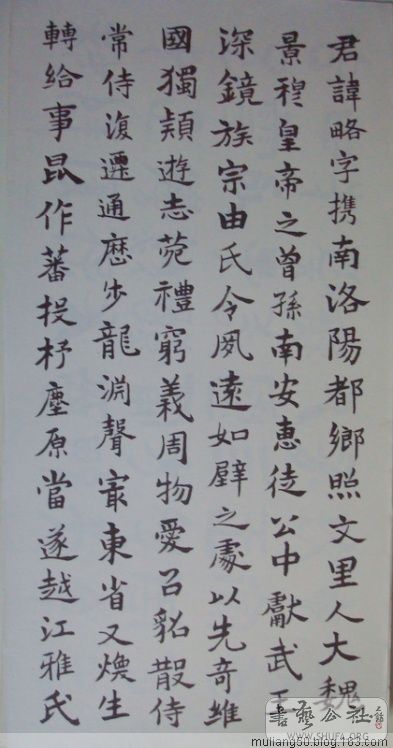 君諱略字携南洛陽都鄉照文里人大魏
景穆皇帝之曾孫南安惠徒公中獻武王
深鏡族宗由氏令夙遠如璧之處以先奇維
國獨穎遊志苑禮窮義周物愛召貂散侍
常侍復遷通歷步龍淵聲㝡東省又煥生
轉給事昆作蕃投杼塵原當遂越江雅氏
書藝公社
WWW.SHUFA.ORG
muliang50.blog.163.com